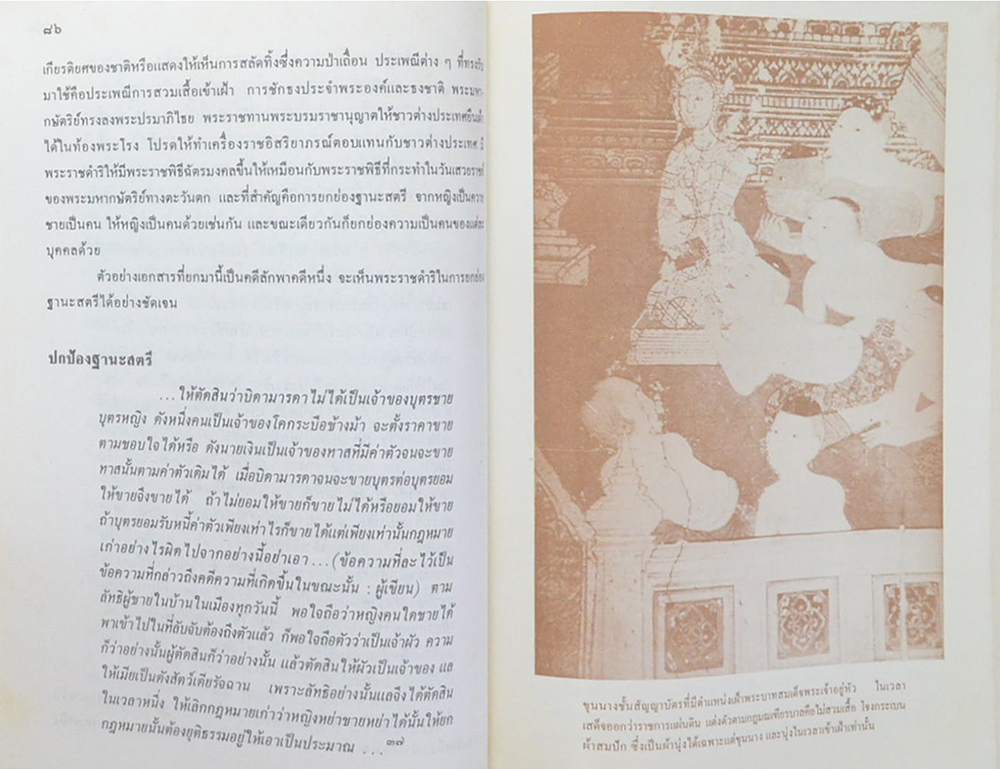 ๘๖
เกียรติยศของชาติหรือแสดงให้เห็นการสลัดทิ้งซึ่งความป่าเถื่อน ประเพณีต่าง ๆ ที่ทรง
มาใช้คือประเพณีการสวมเสื้อเข้าเฝ้า การชักธงประจำพระองค์และธงชาติ
กษัตริย์ทรงลงพระปรมาภิไธย พระราชทานพระบรมราชานุญาตให้ชาวต่างประเทศยืนเฝ้า
ได้ในท้องพระโรง โปรดให้ทำเครื่องราชอิสริยาภรณ์ตอบแทนกับชาวต่างประเทศ
พระราชดำริให้มีพระราชพิธีฉัตรมงคลขึ้นให้เหมือนกับพระราชพิธีที่กระทำในวันเสวยราชย์
ของพระมหากษัตริย์ทางตะวันตก และที่สำคัญคือการยกย่องฐานะสตรี จากหญิงเป็นควาย
ชายเป็นคน ให้หญิงเป็นคนด้วยเช่นกัน และขณะเดียวกันก็ยกย่องความเป็นคนของแต่ละ
บุคคลด้วย
ตัวอย่างเอกสารที่ยกมานี้เป็นคดีลักพาคดีหนึ่ง จะเห็นพระราชดำริในการยกย่อง
ฐานะสตรีได้อย่างชัดเจน
ปกป้องฐานะสตรี
...ให้ตัดสินว่าบิดามารดาไม่ได้เป็นเจ้าของบุตรชาย
บุตรหญิง ดังหนึ่งคนเป็นเจ้าของโคกระบือช้างม้า จะตั้งราคาขาย
ตามชอบใจได้หรือ ดังนายเงินเป็นเจ้าของทาสที่มีค่าตัวจนจะขาย
ทาสนั้นตามค่าตัวเดิมได้ เมื่อบิดามารดาจนจะขายบุตรต่อบุตรยอม
ให้ขายจึงขายได้ ถ้าไม่ยอมให้ขายก็ขายไม่ได้หรือยอมให้ขาย
ถ้าบุตรยอมรับหนี้ค่าตัวเพียงเท่าไรก็ขายได้แต่เพียงเท่านั้นกฎหมาย
เก่าอย่างไรผิดไปจากอย่างนี้อย่าเอา...(ข้อความที่ละไว้เป็น
ข้อความที่กล่าวถึงคดีความที่เกิดขึ้นในขณะนั้น : ผู้เขียน) ตาม
ลัทธิผู้ชายในบ้านในเมืองทุกวันนี้ พอใจถือว่าหญิงคนใดชายได้
พาเข้าไปในที่ลับจับต้องถึงตัวแล้ว ก็พอใจถือตัวว่าเป็นเจ้าผัว ความ
ก็ว่าอย่างนั้นผู้ตัดสินก็ว่าอย่างนั้น แล้วตัดสินให้ผัวเป็นเจ้าของ แล
ให้เมียเป็นดังสัตว์เดียรัจฉาน เพราะลัทธิอย่างนั้นแลจึงได้ตัดสิน
ในเวลาหนึ่ง ให้เลิกกฎหมายเก่าว่าหญิงหย่าชายหย่าได้นั้นให้ยก
กฎหมายนั้นต้องยุติธรรมอยู่ให้เอาเป็นประมาณ ...๓๗
ขุนนางชั้นสัญญาบัตรที่มีตำแหน่งเฝ้าพระบาทสมเด็จพระเจ้าอยู่หัว ในเวลา
เสด็จออกว่าราชการแผ่นดิน แต่งตัวตามกฎมณเฑียรบาลคือไม่สวมเสื้อ โจงกระเบน
ผ้าสมปัก ซึ่งเป็นผ้านุ่งได้เฉพาะแต่ขุนนาง และนุ่งในเวลาเข้าเฝ้าเท่านั้น